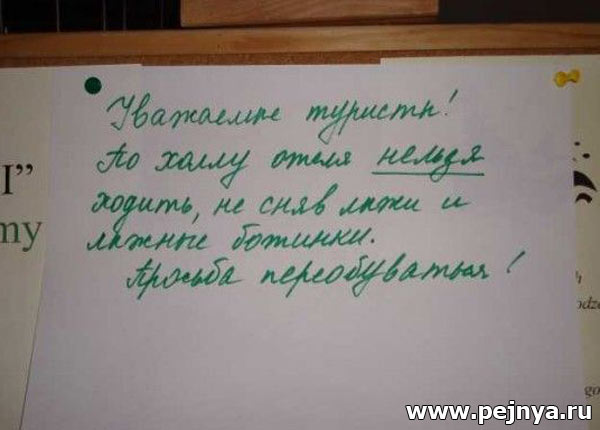 Уважаемые туристы!
По холлу отеля нельзя
ходить, не сняв лыжи и
лыжные ботинки.
Просьба переобуваться!
I”
my
www.pejnya.ru